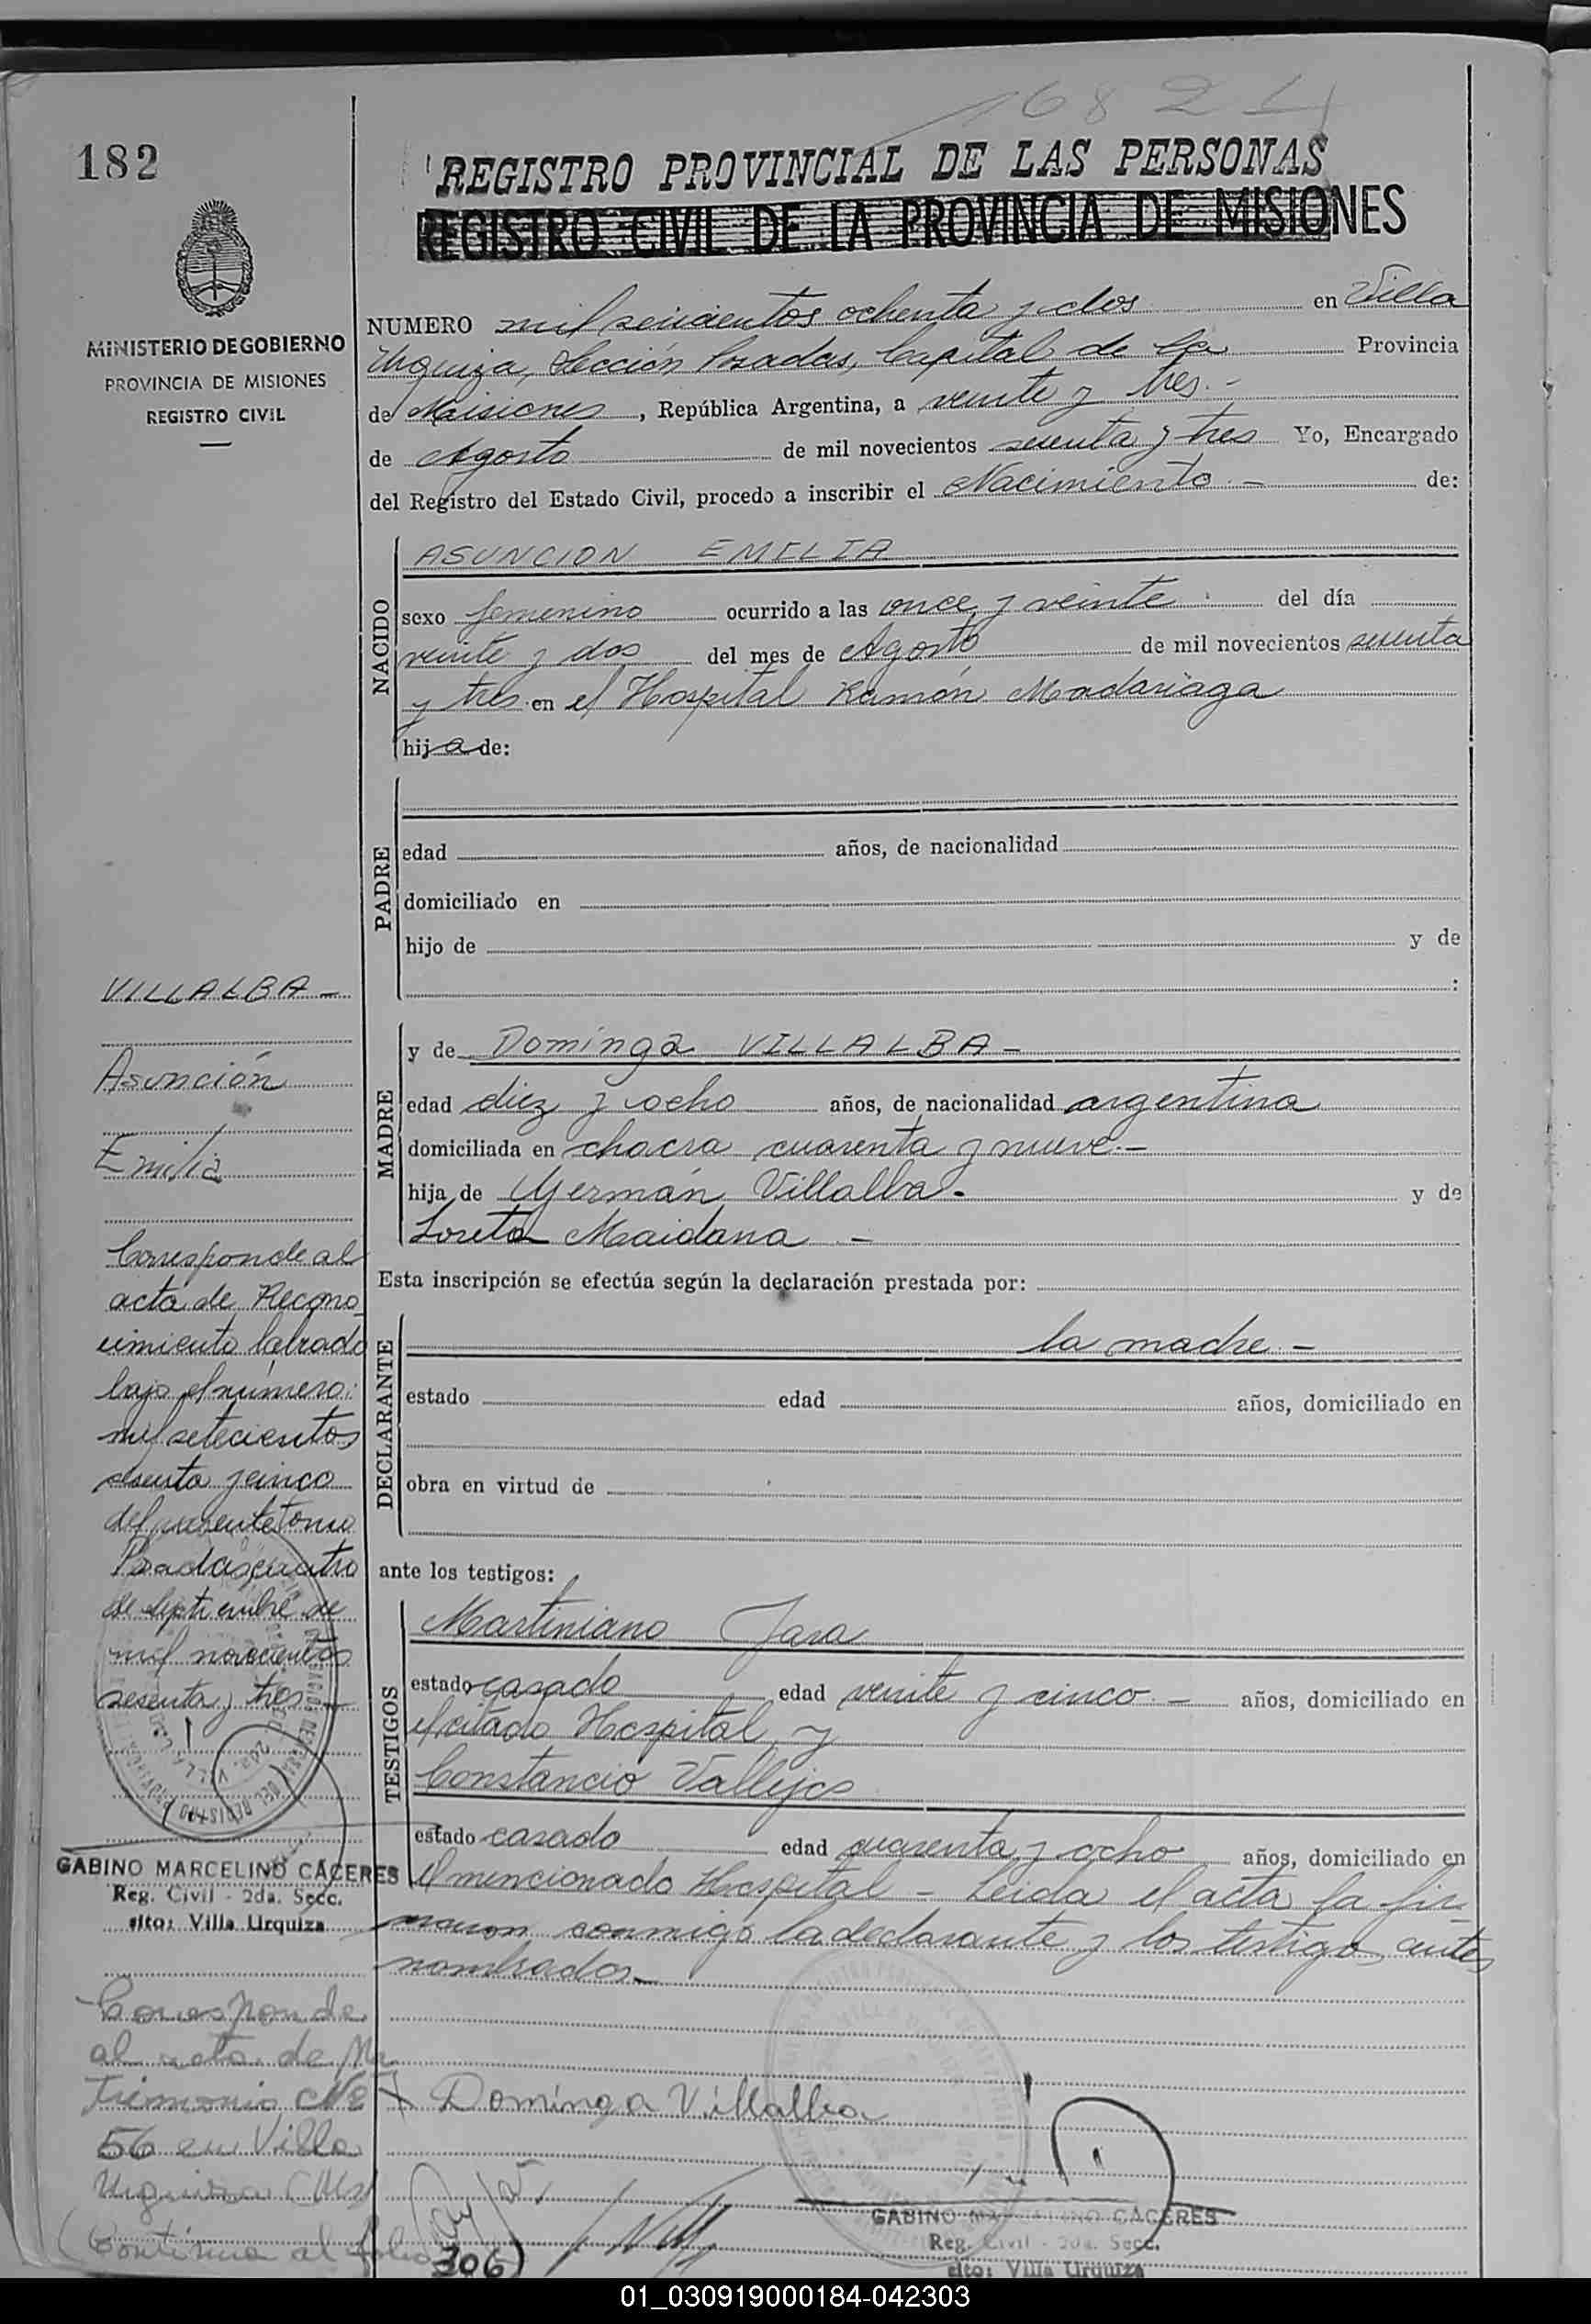 1682
182
REGISTRO PROVINCIAL DE LAS PERSONAS
REGISTRO CIVIL DE LA PROVINCIA DE MISIONES
MINISTERIO DE GOBIERNO
PROVINCIA DE MISIONES
REGISTRO CIVIL
NUMERO mil seiscientos ochenta y dos en Villa
Urquiza, Sección Posadas, Capital de la Provincia
de Misiones, República Argentina, a veinte y tres.-
de Agosto de mil novecientos sesenta y tres Yo, Encargado
del Registro del Estado Civil, procedo a inscribir el Nacimiento.- de:
NACIDO
ASUNCION EMILIA
sexo femenino ocurrido a las once y veinte del día
veinte y dos del mes de Agosto de mil novecientos sesenta
y tres en el Hospital Ramón Madariaga
hija de:
PADRE
edad años, de nacionalidad
domiciliado en
hijo de y de
:
MADRE
y de Dominga VILLALBA-
edad diez y ocho años, de nacionalidad argentina
domiciliada en chacra cuarenta y nueve.-
hija de Germán Villalba. y de
Loreta Maidana -
Esta inscripción se efectúa según la declaración prestada por:
DECLARANTE
la madre.-
estado edad años, domiciliado en
obra en virtud de
ante los testigos:
TESTIGOS
Martiniano Jara
estado casado edad veinte y cinco.- años, domiciliado en
el citado Hospital y
Constancio Vallejos
estado casado edad cuarenta y ocho años, domiciliado en
el mencionado Hospital - Leida el acta la fir-
maron conmigo la declarante y los testigos antes
nombrados-
Dominga Villalba
GABINO MARCELINO CACERES
Reg. Civil - 2da. Secc.
sito: Villa Urquiza
VILLALBA-
Asunción
Emilia
Corresponde al
acta de Recono
cimiento labrado
bajo el número:
mil setecientos
sesenta y cinco
del presente tomo
Posadas, cuatro
de Septiembre de
mil novecientos
sesenta y tres -
GABINO MARCELINO CÁCERES
Reg. Civil - 2da. Secc.
sito: Villa Urquiza
Corresponde
al acta de Ma
trimonio Nº
56 en Villa
Urquiza (Ms)
(Continua al folio
306)
01_030919000184-042303